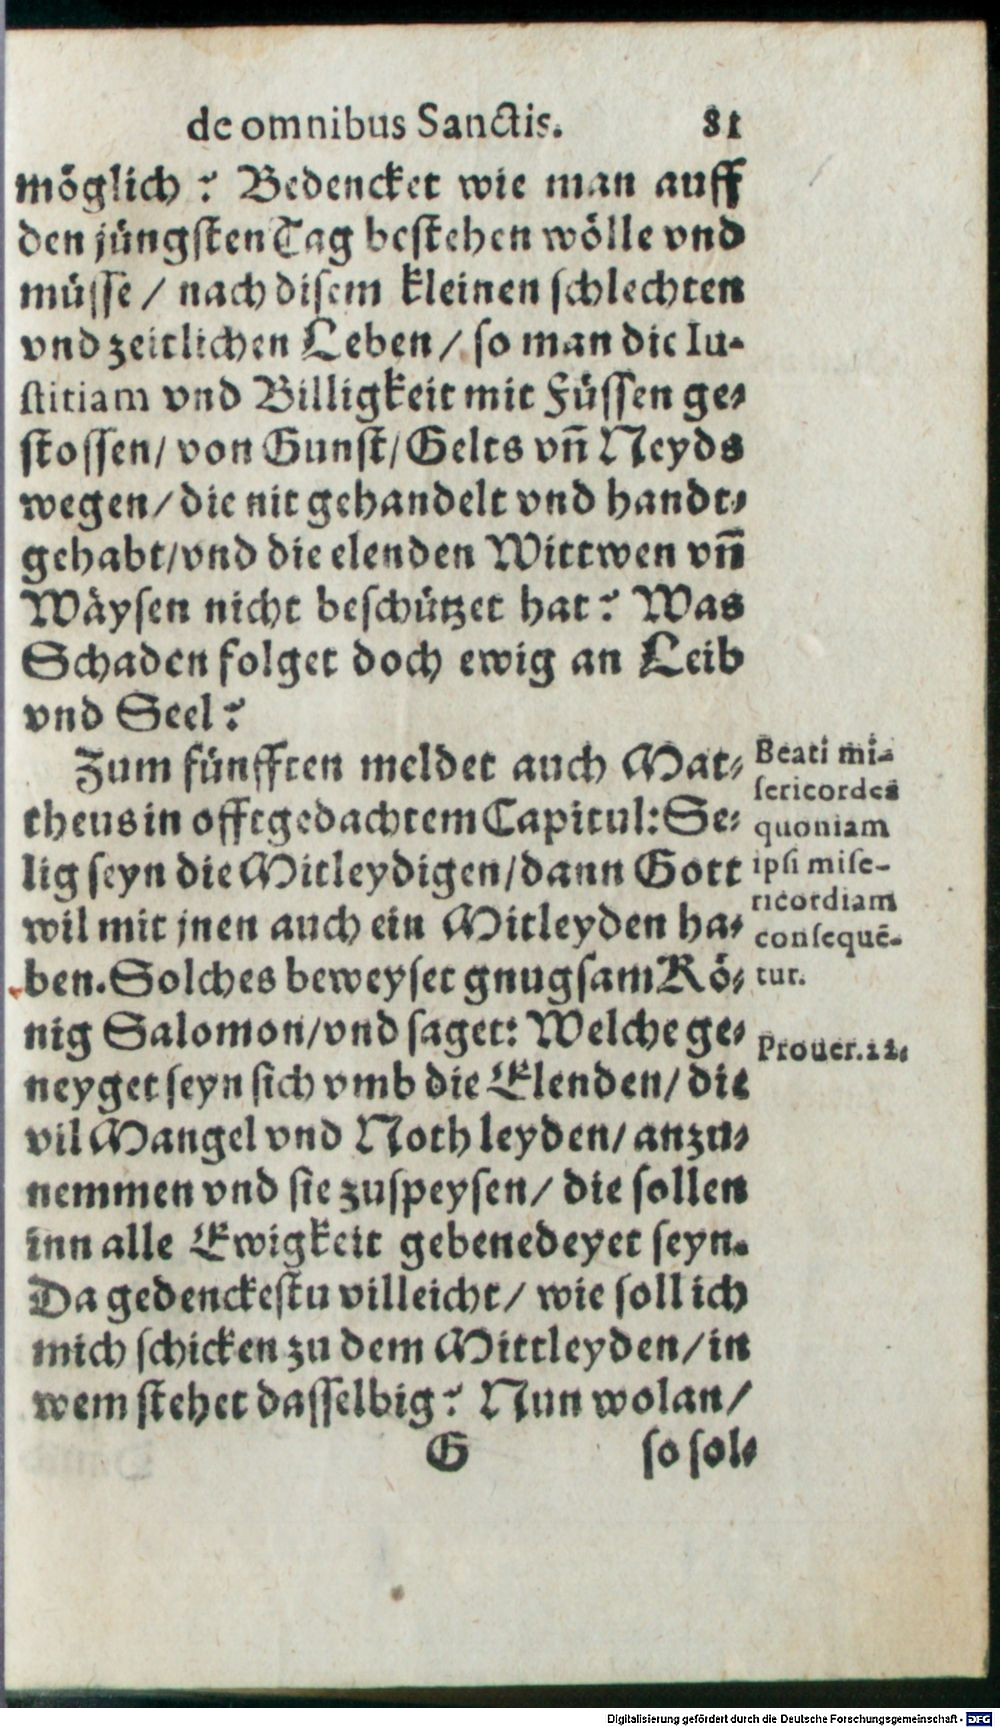 de omnibus Sanctis. 81
möglich? Bedencket wie man auff
den jüngsten Tag bestehen wölle vnd
müsse / nach disem kleinen schlechten
vnd zeitlichen Leben / so man die Iu-
stitiam vnd Billigkeit mit Füssen ge-
stossen / von Gunst / Gelts vñ Neyds
wegen / die nit gehandelt vnd handt-
gehabt / vnd die elenden Wittwen vñ
Wäysen nicht beschützet hat? Was
Schaden folget doch ewig an Leib
vnd Seel?
Zum fünfften meldet auch Mat-
theus in offtgedachtem Capitul: Se-
lig seyn die Mitleydigen / dann Gott
wil mit jnen auch ein Mitleyden ha-
ben. Solches beweyset gnugsam Kö-
nig Salomon / vnd saget: Welche ge-
neyget seyn sich vmb die Elenden / die
vil Mangel vnd Noth leyden / anzu-
nemmen vnd sie zuspeysen / die sollen
inn alle Ewigkeit gebenedeyet seyn.
Da gedenckestu villeicht / wie soll ich
mich schicken zu dem Mittleyden / in
wem stehet dasselbig? Nun wolan /
G so sol-
Beati mi-
sericordes
quoniam
ipsi mise-
ricordiam
consequē-
tur.
Prouer.22.
Digitalisierung gefördert durch die Deutsche Forschungsgemeinschaft - DFG